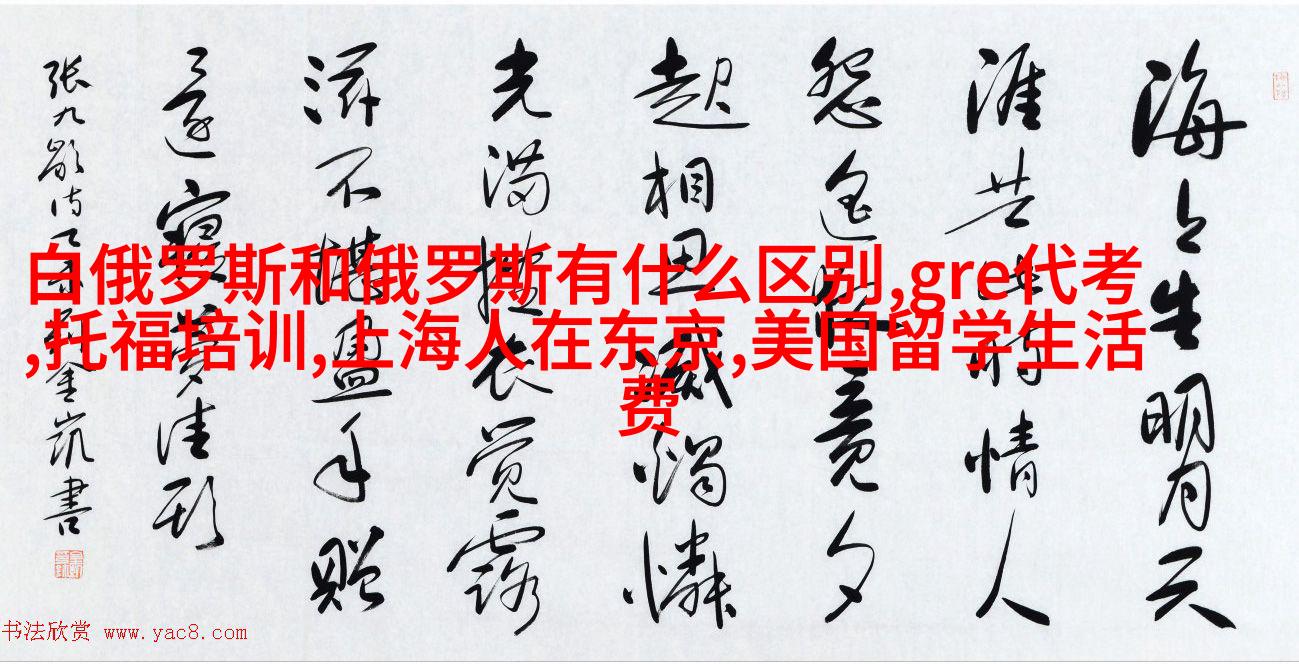 白俄罗斯和俄罗斯有什么区别,gre代考
,托福培训,上海人在东京,美国留学生活
费
海上生明月天
涯共此时情人
怨遥夜竟夕
起相思滅燭憐
光满披衣觉露
滋不堪盈手赠
還寝夢佳期
张九龄诗
金凯書
书法欣赏 www.yac8.com